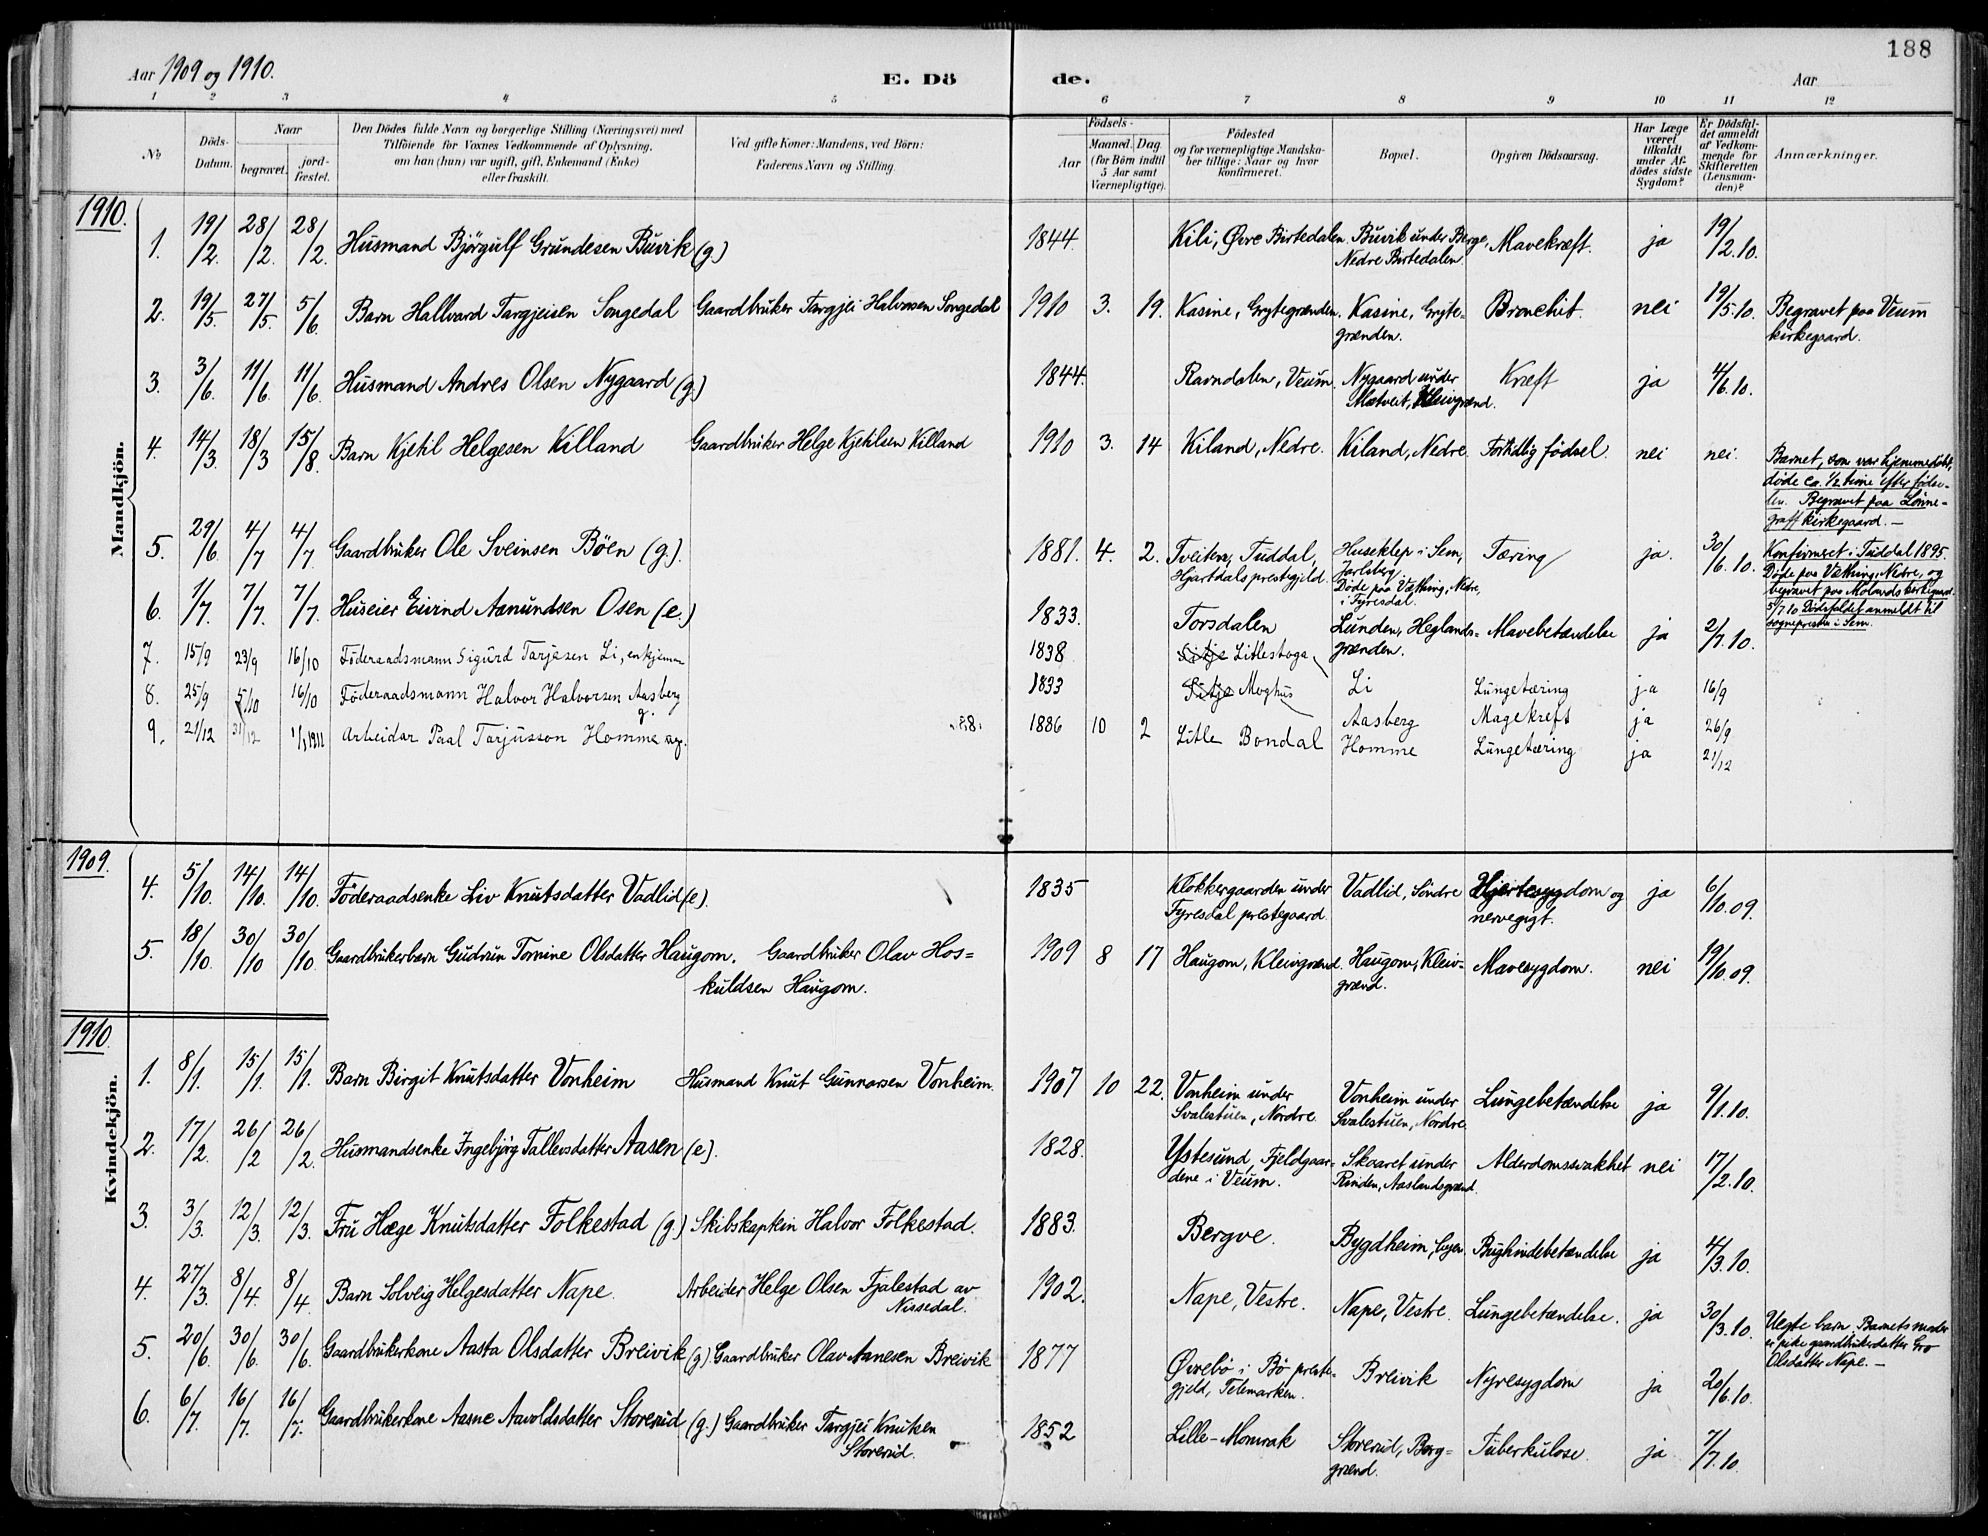 188
Aar 1909 og 1910.
E. Dö de.
Aar
1 2 3 4 5 6 7 8 9 10 11 12
No
Döds-Datum.
Naar
begravet.
jord-fæstet.
Den Dödes fulde Navn og borgerlige Stilling (Næringsvei) med
Tilföiende for Voxnes Vedkommende af Oplysning,
om han (hun) var ugift, gift, Enkemand (Enke)
eller fraskilt.
Ved gifte Koner: Mandens, ved Börn:
Faderens Navn og Stilling.
Födsels-
Aar
Maaned. Dag
(for Börn indtil
5 Aar samt
Værnepligtige).
Födested
og for værnepligtige Mandska-
ber tillige: Naar og hvor
konfirmeret.
Bopæl.
Opgiven Dödsaarsag.
Har Læge
været
tilkaldt
under Af-
dödes sidste
Sygdom?
Er Dödsfal-
det anmeldt
af Vedkom-
mende for
Skifteretten
(Lensman-
den)?
Anmærkninger.
Mandkjön.
1910.
1. 19/2. 28/2. 28/2. Husmand Bjørgulf Grundesen Buvik (g.) 1844. Kili, Øvre Birtedalen. Buvik under Berge, Mavekræft. ja 19/2.10.
Nedre Birtedalen.
2. 19/5. 27/5. 5/6. Barn Hallvard Targjeisen Songedal Gaardbruker Targjei Halvorsen Songedal 1910 3. 19. Kasine, Grytegrænden. Kasine, Gryte- Bronchit. nei 19/5.10. Begravet paa Veum
grænden. kirkegaard.
3. 3/6. 11/6. 11/6. Husmand Andres Olsen Nygaard (g.) 1844. Ravndalen, Veum. Nygaard under Kræft ja 4/6.10.
Mætveit, Kleivgrænd.
4. 14/3. 18/3 15/8. Barn Kjetil Helgesen Killand Gaardbruker Helge Kjetilsen Killand 1910 3. 14 Kiland, Nedre. Kiland, Nedre. Fortidlig fødsel. nei nei.
Barnet, som var hjemmedøbt,
døde ca. 1/2 time efter fødse-
len. Begravet paa Lønne-
graff kirkegaard. —
5. 29/6 4/7 4/7. Gaardbruker Ole Sveinsen Bøen (g.). 1881. 4. 2. Tveiten, Tuddal, Huseklep i Sem, Tæring ja. 30/6.10. Konfirmeret i Tuddal 1895.
Hjartdals prestegjeld. Jarlsberg.
Døde paa Vætting, Nedre,
i Fyresdal.
Døde paa Vætting, Nedre, og
begravet paa Molands kirkegaard
5/7.10 Dødsfaldet anmeldt til
sognepresten i Sem.
6. 1/7. 7/7. 7/7. Huseier Eivind Aamundsen Osen (e.) 1833. Torsdalen Lunden, Heglands- Mavebetændelse ja 2/7.10.
grænden.
7. 15/9 23/9 16/10 Föderaadsmann Sigurd Tarjesen Li, enkjemann 1838 Litlestoga Li Lungetæring ja 16/9
8. 25/9 5/10 16/10 Föderaadsmann Halvor Halvorsen Aasberg g. 1833 Moghus Aasberg Magekreft ja 26/9
9. 21/12 31/12 1/1 1911 Arbeidar Paal Tarjusson Homme ug. 1886 10 2 Litle Bondal Homme Lungetæring ja 21/12
1909.
4. 5/10. 14/10. 14/10. Föderaadsenke Liv Knutsdatter Vadlid (e). 1835 Klokkergaarden under Vadlid, Söndre Hjertesygdom og ja 6/10.09.
Fyresdal prestegaard. nervegigt.
5. 18/10. 30/10 30/10. Gaardbrukerbarn Gudrun Tomine Olsdatter Haugom. Gaardbruker Olav Hos- 1909 8 17 Haugom, Kleivgrænd. Haugom, Kleiv- Mavesygdom. nei 19/10.09.
kuldsen Haugom. grænd.
Kvindekjön.
1910.
1. 8/1. 15/1. 15/1. Barn Birgit Knutsdatter Vonheim Husmand Knut Gunnarsen Vonheim. 1907 10 22. Vonheim under Vonheim under Lungebetændelse ja 9/1.10.
Svalestuen, Nordre. Svalestuen, Nordre.
2. 17/2. 26/2 26/2. Husmandsenke Ingebjørg Tallevsdatter Aasen (e). 1828. Ystesund, Fjeldgaar- Skaaret under Alderdomssvakhet nei 17/2.10.
dene i Veum. Rinden, Aaslandsgrænd.
3. 3/3. 12/3. 12/3. Fru Hæge Knutsdatter Folkestad (g.) Skibskaptein Halvor Folkestad. 1883. Bergve. Bygdheim, Bughindebetændelse ja 4/3.10.
4. 27/3. 8/4. 8/4 Barn Solveig Helgesdatter Nape. Arbeider Helge Olsen Fjalestad av 1902. Nape, Vestre. Nape, Vestre. Lungebetændelse. ja 30/3.10. Uegte barn. Barnets moder
Nissedal. er pike gaardbrukerdatter Gro
Olsdatter Nape. —
5. 20/6. 30/6. 30/6. Gaardbrukerkone Aasta Olsdatter Breivik (g). Gaardbruker Olav Aanesen Breivik 1877 Øvrebö i Bö preste- Breivik Nyresygdom ja 20/6.10.
gjeld, Telemarken.
6. 6/7. 16/7. 16/7. Gaardbrukerkone Aasne Aavoldsdatter Storerud (g.) Gaardbruker Targjei Knutsen 1852 Lille-Momrak Storerud, Berg- Tuberkulose. ja 7/7.10.
Storerud. grænd.